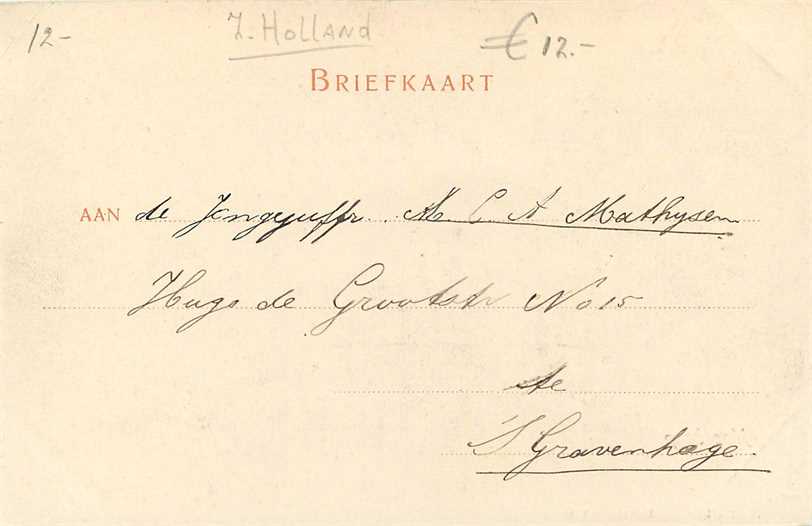 12-
Z. HOLLAND
€ 12.-
BRIEFKAART
AAN de Jongejuffr. M. C. A Mathysen
Hugo de Grootstr No 15
te
'S Gravenhage.